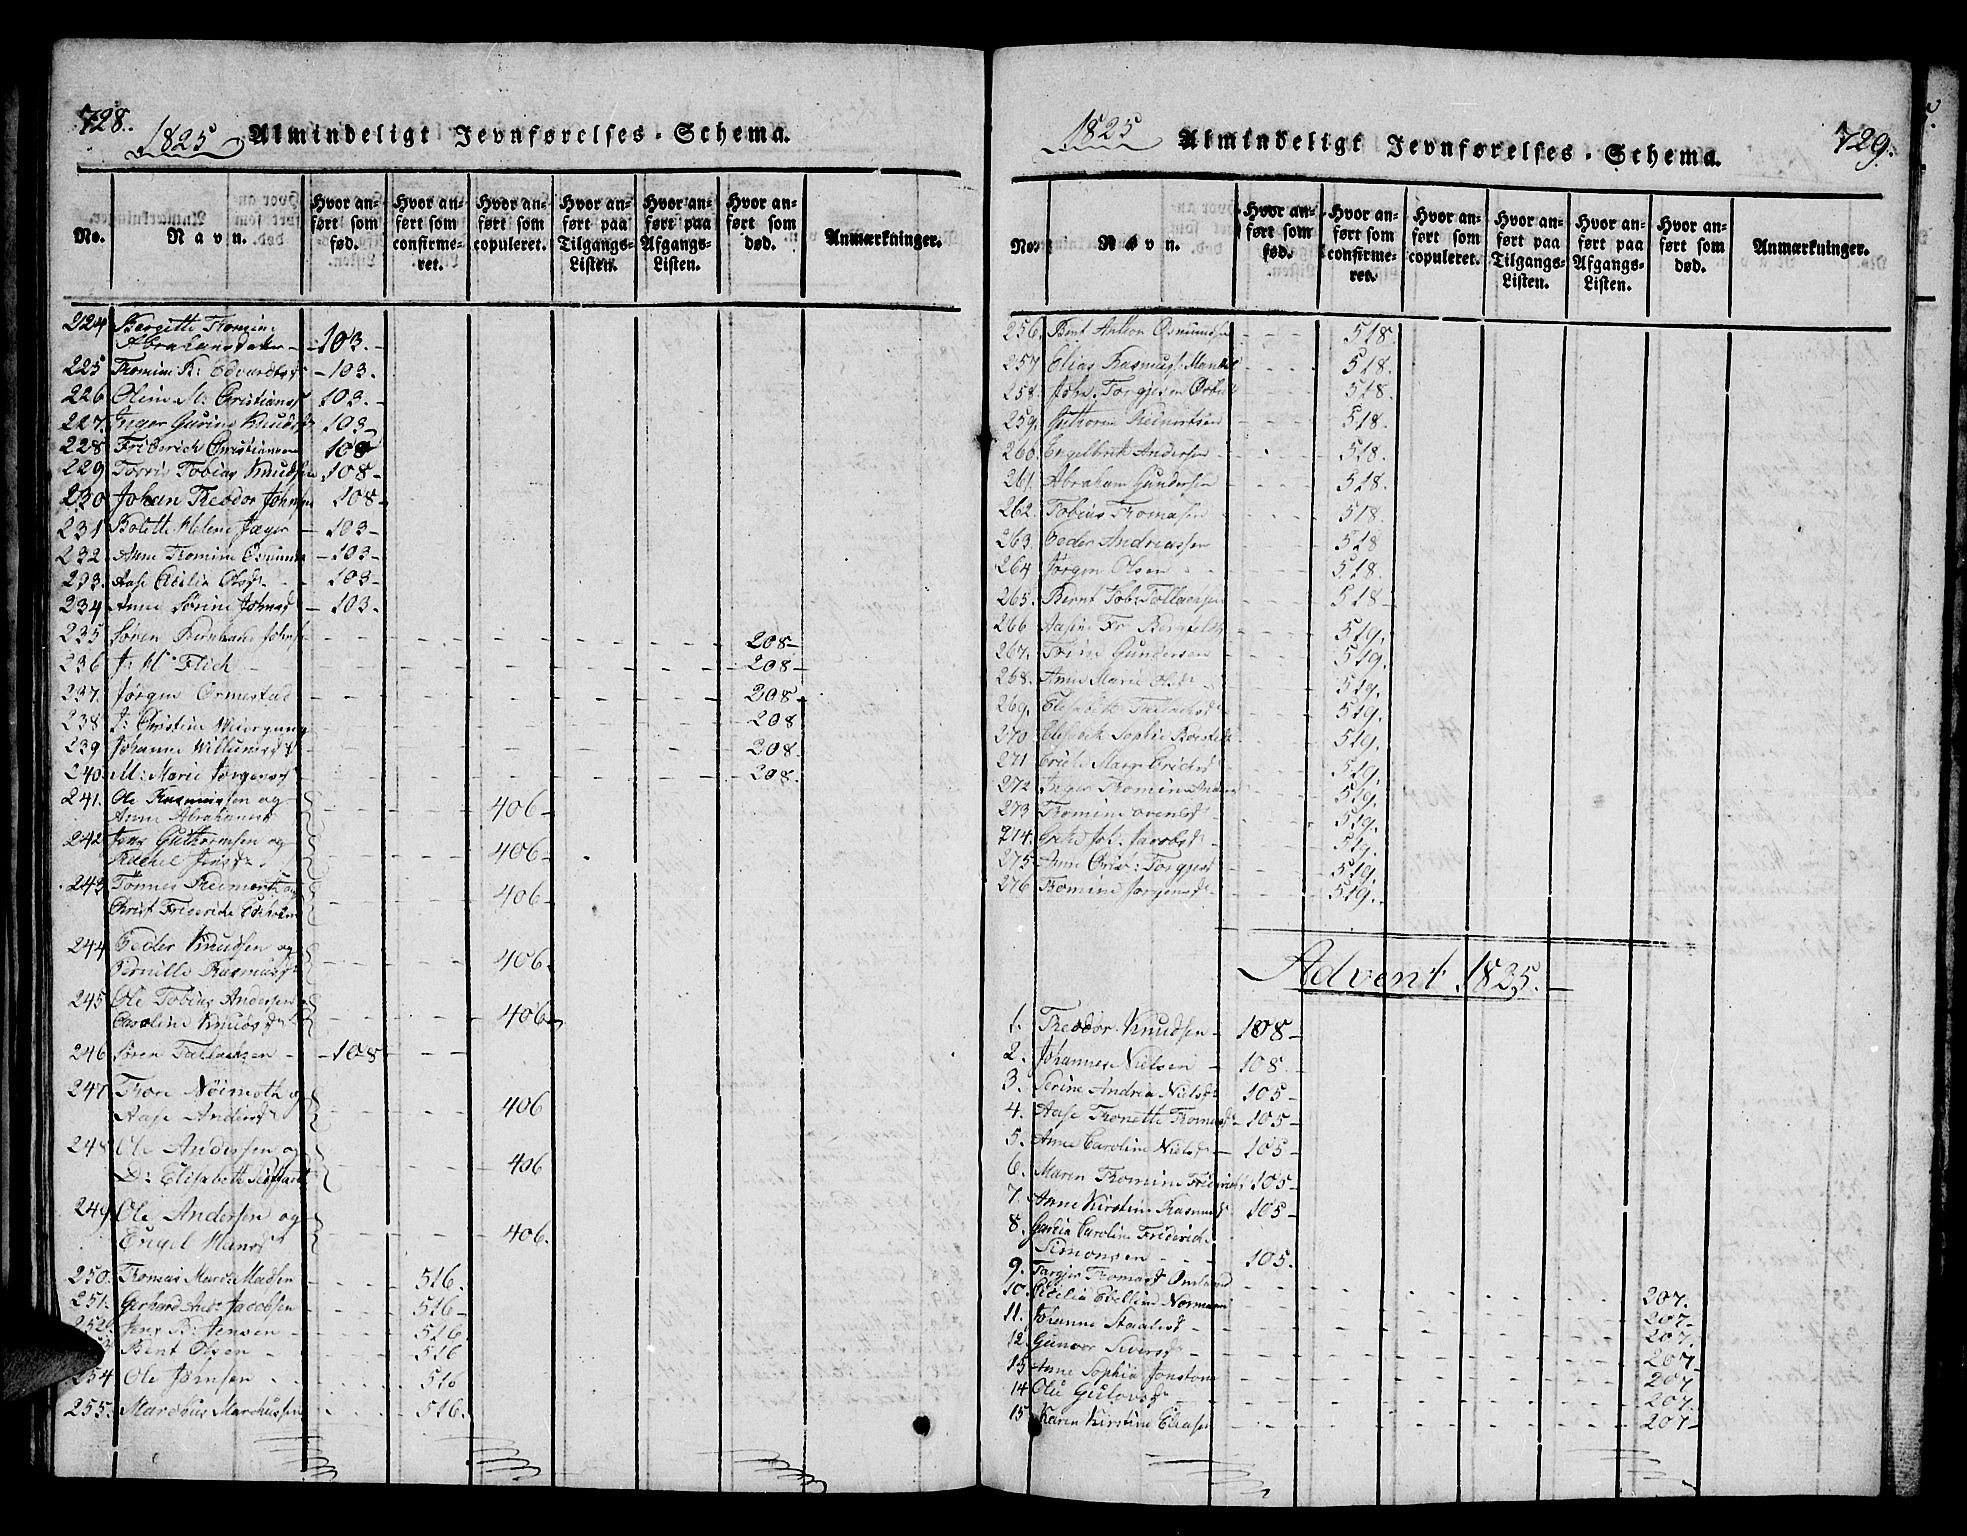 728.
1825 Almindeligt Jevnførelses-Schema.
No. Navn. Hvor anført som fød. Hvor anført som confirmeret. Hvor anført som copuleret. Hvor anført paa Tilgangs-Listen. Hvor anført paa Afgangs-Listen. Hvor anført som død. Anmærkninger.
224 Bergitte Tromine
Abrahamsdatter - 103.
225 Tromine K: Edvardsd - 103.
226 Oline M: Christiansd 103.
227. Inger Gurine Knudsd 103
228 Friderich Christiansen 108
229 Torris Tobias Knudsen 108-
230 Johan Theodor Johnsen 108-
231 Bolette Helene Jæger - 103-
232. Anne Tromine Osmunds - 103-
233. Aase Cecilia Olsd - 103-
234 Anne Sørine Johnsd - 103-
235 Søren Bernhard Johns - - - - - 208-
236 J: M: Flich - - - - - 208-
237. Jørgen Ormestad - - - - - 208-
238 J: Christine Weiergang - - - - - 208
239 Johanne Willumsd - - - - - 208-
240. M: Marie Jørgensd - - - - - 208.
241. Ole Rasmussen og
Anne Abrahamsd - - - 406-
242 Jens Guthormsen og
Rachel Jensd - - - 406-
243 Tønnes Reimerth og
Christ Friderike Edsholm - - - 406-
244 Peder Knudsen og
Pernille Rasmusd - - - 406-
245 Ole Tobias Andersen
Caroline Knudsd - - - 406-
246 Søren Tallachsen - 108 - -
247 Thore Nøimoth og
Aase Andersd - - - 406
248 Ole Andersen og
D: Elisabeth - - - 406
249 Ole Andersen og
Engel Hansd - - - 406.
250. Thomas Mard: Madsen - - 516.
251. Gerhard And: Jacobsen - - 516-
252. Jens B: Jensen - - 516.
Bent Olsen - - 516
254 Ole Johnsen - - 516
255. Mardous Marchussen - - 516.
1825 Almindeligt Jevnførelses-Schema. 729.
No. Navn. Hvor anført som fød. Hvor anført som confirmeret. Hvor anført som copuleret. Hvor anført paa Tilgangs-Listen. Hvor anført paa Afgangs-Listen. Hvor anført som død. Anmærkninger.
256. Bent Anthon Osmundsen - - 518.
257 Elias Rasmus: - - 518.
258. John Torgjesen - - 518.
259. Guthorm Reinertsen - - 518.
260. Engelbrik Andersen - - 518.
261. Abraham Gundersen - - 518.
262. Tobias Thomasen - - 518.
263. Peder Andreassen - - 518
264 Jørgen Olsen - - 518.
265. Bernt Tob: Tollaksen - - 518-
266 Aasine Fr Bergfeldt - - 519.
267. Trine Gundersen - - 519.
268. Anne Marie Olsd - - 519.
269. Elisabeth Tallachsd - - 519.
270 Elisbeth Sophie - - 519.
271 Griete Marg: Erichsd - - 519.
272 Inger Tromine Anders - - 519.
273 Tromine Svensd - - 519.
274. Grethe Joh: Jacobsd - - 519.
275. Anne Torgjesd - - 519.
276 Tromine Jørgensd - - 519.
Advent 1825.
1. Theodor Knudsen - 108-
2. Johannes Nielsen - 108.
3. Serine Andrea Nielsd 105-
4. Aase Tronette Thomasd 105-
5. Anne Caroline Nielsd - 105-
6. Maren Tromine Friderichs 105-
7. Anne Kirstine Rasmusd 105-
8. Gardia Caroline Friderich
Simonsen - 105.
9. Targjer Thomasd Omland
10. Cecilia Ebelline Normann - - - - - 207.
11. Johanne Staalesd - - - - - 207-
12. Gunvor Siversd - - - - - 207.
13 Anne Sophia Jonstone - - - - - 207-
14 Olu Gulovsd - - - - - 207
15 Karen Kirstine Eliasen - - - - - 207-